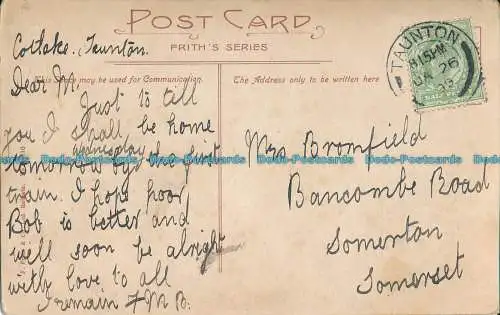 POST CARD
FRITH'S SERIES
This Space may be used for Communication.
The Address only to be written here
TAUNTON
9.15PM
26
Cotlake. Taunton.
Dear M.
Just to till
you I shall be home
wednesday
tomorrow by the first
train. I hope poor
Bob is better and
well soon be alright
with love to all
I remain F M B.
Mrs Bromfield
Bancombe Road
Somerton
Somerset
Dodo-Postcards Dodo-Postcards Dodo-Postcards Dodo-Postcards